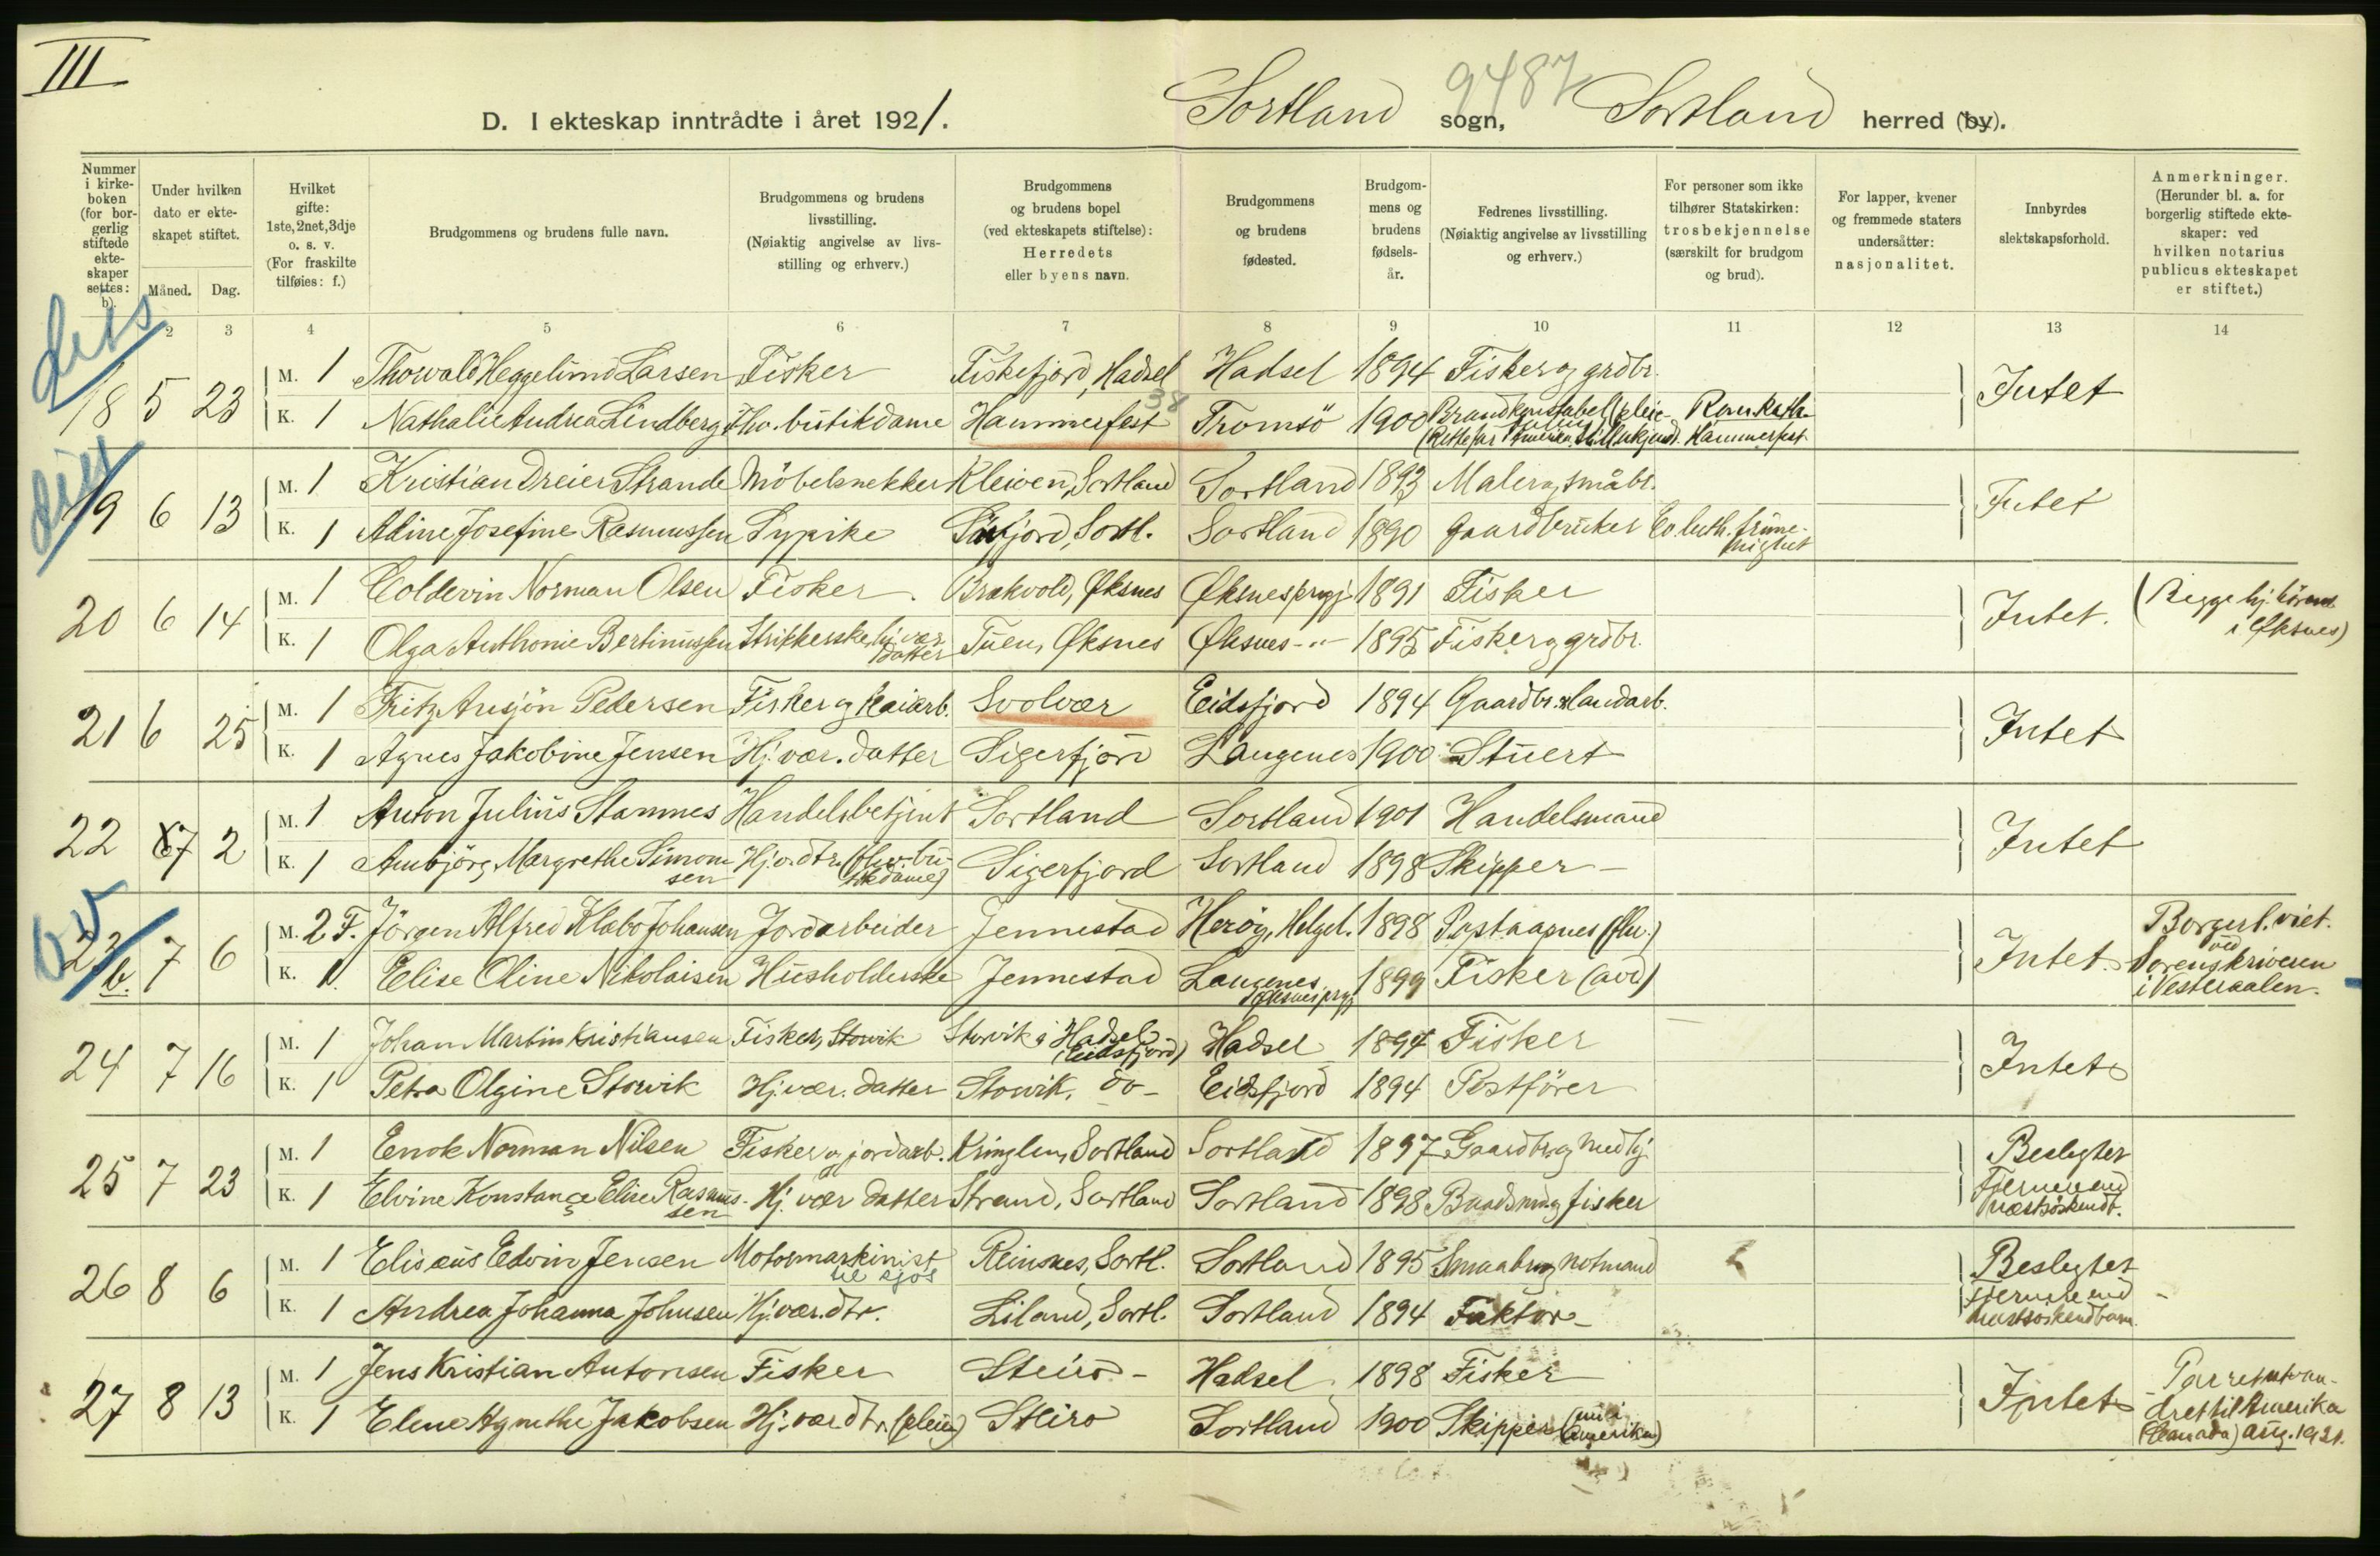 III
9487
D. I ekteskap inntrådte i året 1921. Sortland sogn, Sortland herred (by).
Nummer i kirkeboken (for borgerlig stiftede ekteskaper settes: b).
Under hvilken dato er ekteskapet stiftet.
Måned. Dag.
Hvilket gifte: 1ste, 2net, 3dje o. s. v. (For fraskilte tilføies: f.)
Brudgommens og brudens fulle navn.
Brudgommens og brudens livsstilling. (Nøiaktig angivelse av livsstilling og erhverv.)
Brudgommens og brudens bopel (ved ekteskapets stiftelse): Herredets eller byens navn.
Brudgommens og brudens fødested.
Brudgommens og brudens fødselsår.
Fedrenes livsstilling. (Nøiaktig angivelse av livsstilling og erhverv.)
For personer som ikke tilhører Statskirken: trosbekjennelse (særskilt for brudgom og brud).
For lapper, kvener og fremmede staters undersåtter: nasjonalitet.
Innbyrdes slektskapsforhold.
Anmerkninger. (Herunder bl. a. for borgerlig stiftede ekteskaper: ved hvilken notarius publicus ekteskapet er stiftet.)
2 3 4 5 6 7 8 9 10 11 12 13 14
18 5 23 M. 1 Thorvald Heggelund Larsen Fisker Fiskefjord, Hadsel Hadsel 1894 Fisker og grdbr. Intet
K. 1 Nathalie Andrea Lindberg fhv. butikdame Hammerfest 38 Tromsö 1900 Brandkonstabel (pleie- Rom. Katb. Hammerfest
19 6 13 M. 1 Kristian Dreier Strande Möbelsnekker Kleiven, Sortland Sortland 1893 Maler og småbr. Intet
K. 1 Adine Josefine Rasmussen Sypike Sortl. Sortland 1890 Gaardbruker Ev. luth. frimenighet
20 6 14 M. 1 Coldevin Norman Olsen Fisker Brakvold, Øksnes Øksnes prgj 1891 Fisker Intet. (Begge hj. hörende i Øksnes)
K. 1 Olga Anthonie Bertinussen Strikkerske, hj. vær. datter Tuen, Øksnes Øksnes -"- 1895 Fisker og grdbr.
21 6 25 M. 1 Fritz Ansjön Pedersen Fisker og kaiarb. Svolvær Eidsfjord 1894 Gaardbr. landarb. Intet
K. 1 Agnes Jakobine Jensen Hj. vær. datter Sigerfjord Langenes 1900 Stuert
22 7 2 M. 1 Anton Julius Stamnes Handelsbetjent Sortland Sortland 1901 Handelsmand Intet
K. 1 Margrethe Simonsen Hj. v. dtr. (fhv. butikdame) Sigerfjord Sortland 1898 Skipper
23 b. 7 6 M. 2 F. Jörgen Alfred Klabo Johansen Jordarbeider Jennestad Herøy, Helgel. 1898 Postaapner (fhv.) Intet. Borgerl. viet. ved Sorenskriveren i Vesteraalen.
K. 1 Elise Oline Nikolaisen Husholderske Jennestad Langenes Øksnes prgj 1899 Fisker (død)
24 7 16 M. 1 Johan Martin Kristiansen Fisker, Storvik Storvik i Hadsel (Eidsfjord) Hadsel 1894 Fisker Intet
K. 1 Petra Olgine Storvik Hj. vær. datter Storvik, do- Eidsfjord 1894 Postförer
25 7 23 M. 1 Enok Norman Nilsen Fisker og jordarb. Kringlen, Sortland Sortland 1897 Gaardbr. og Beslegtet Fjernere end næstsöskendb.
K. 1 Elvine Konstance Elise Rasmussen Hj. vær datter Strand, Sortland Sortland 1898 Buadsmd og fisker
26 8 6 M. 1 Elisæus Edvin Jensen Motormaskinist til sjös Reinsnes, Sortl. Sortland 1895 Smaabr. og notmand Beslegtet Fjernere end næstsöskendbarn.
K. 1 Andrea Johanna Johnsen Hj. vær. dtr. Liland, Sortl. Sortland 1894 Faktor
27 8 13 M. 1 Jens Kristian Antonsen Fisker Steiro Hadsel 1898 Fisker Intet Parret utvandret til Amerika (Canada) aug. 1921.
K. 1 Elene Agnethe Jakobsen Hj. vær dtr. (pleie) Steiro Sortland 1900 Skipper (nu i Amerika)